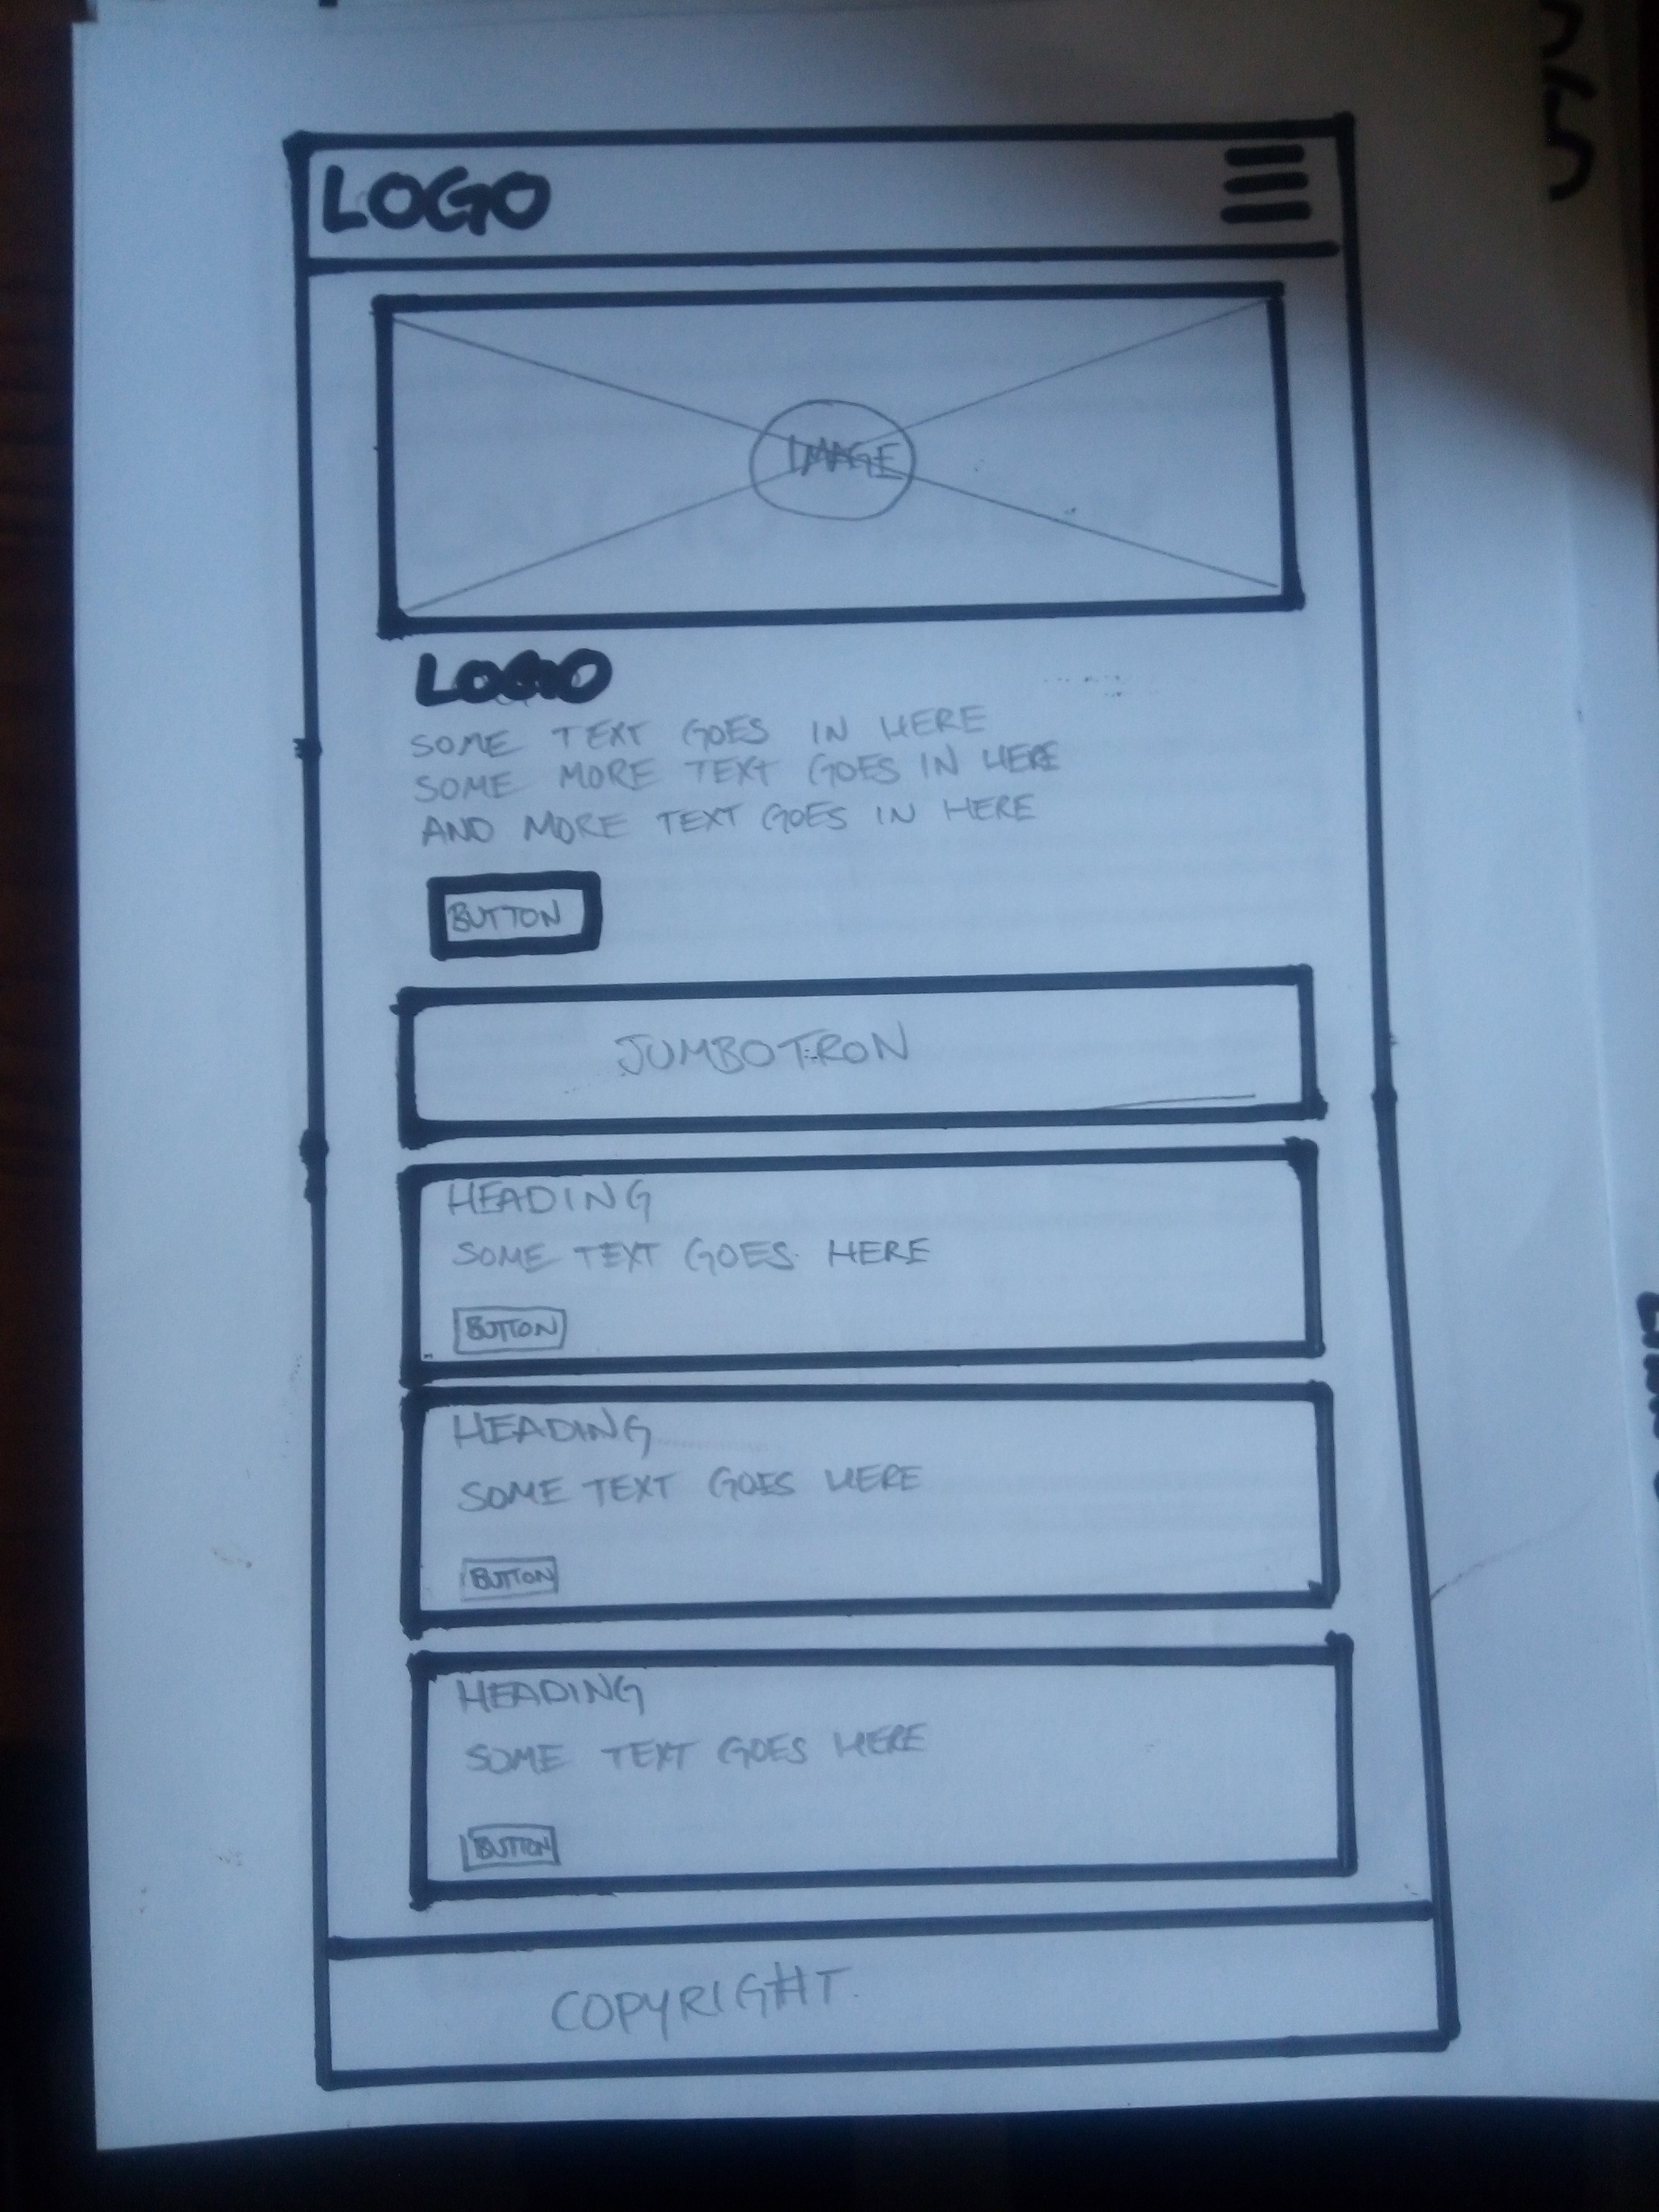 LOGO
IMAGE
LOGO
SOME TEXT GOES IN HERE
SOME MORE TEXT GOES IN HERE
AND MORE TEXT GOES IN HERE
BUTTON
JUMBOTRON
HEADING
SOME TEXT GOES HERE
BUTTON
HEADING
SOME TEXT GOES HERE
BUTTON
HEADING
SOME TEXT GOES HERE
BUTTON
COPYRIGHT.